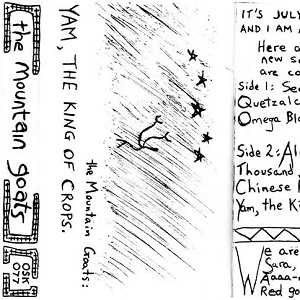 the Mountain goats
OSK
077
YAM, THE KING OF CROPS.
the Mountain Goats:
IT'S JULY
AND I AM A
Here a
new so
are co
Side 1: Sec
Quetzalc
Omega Bla
Side 2: Al
Thousand
Chinese
Yam, the Ki
We are
Sara,
Aaaa-
Red go